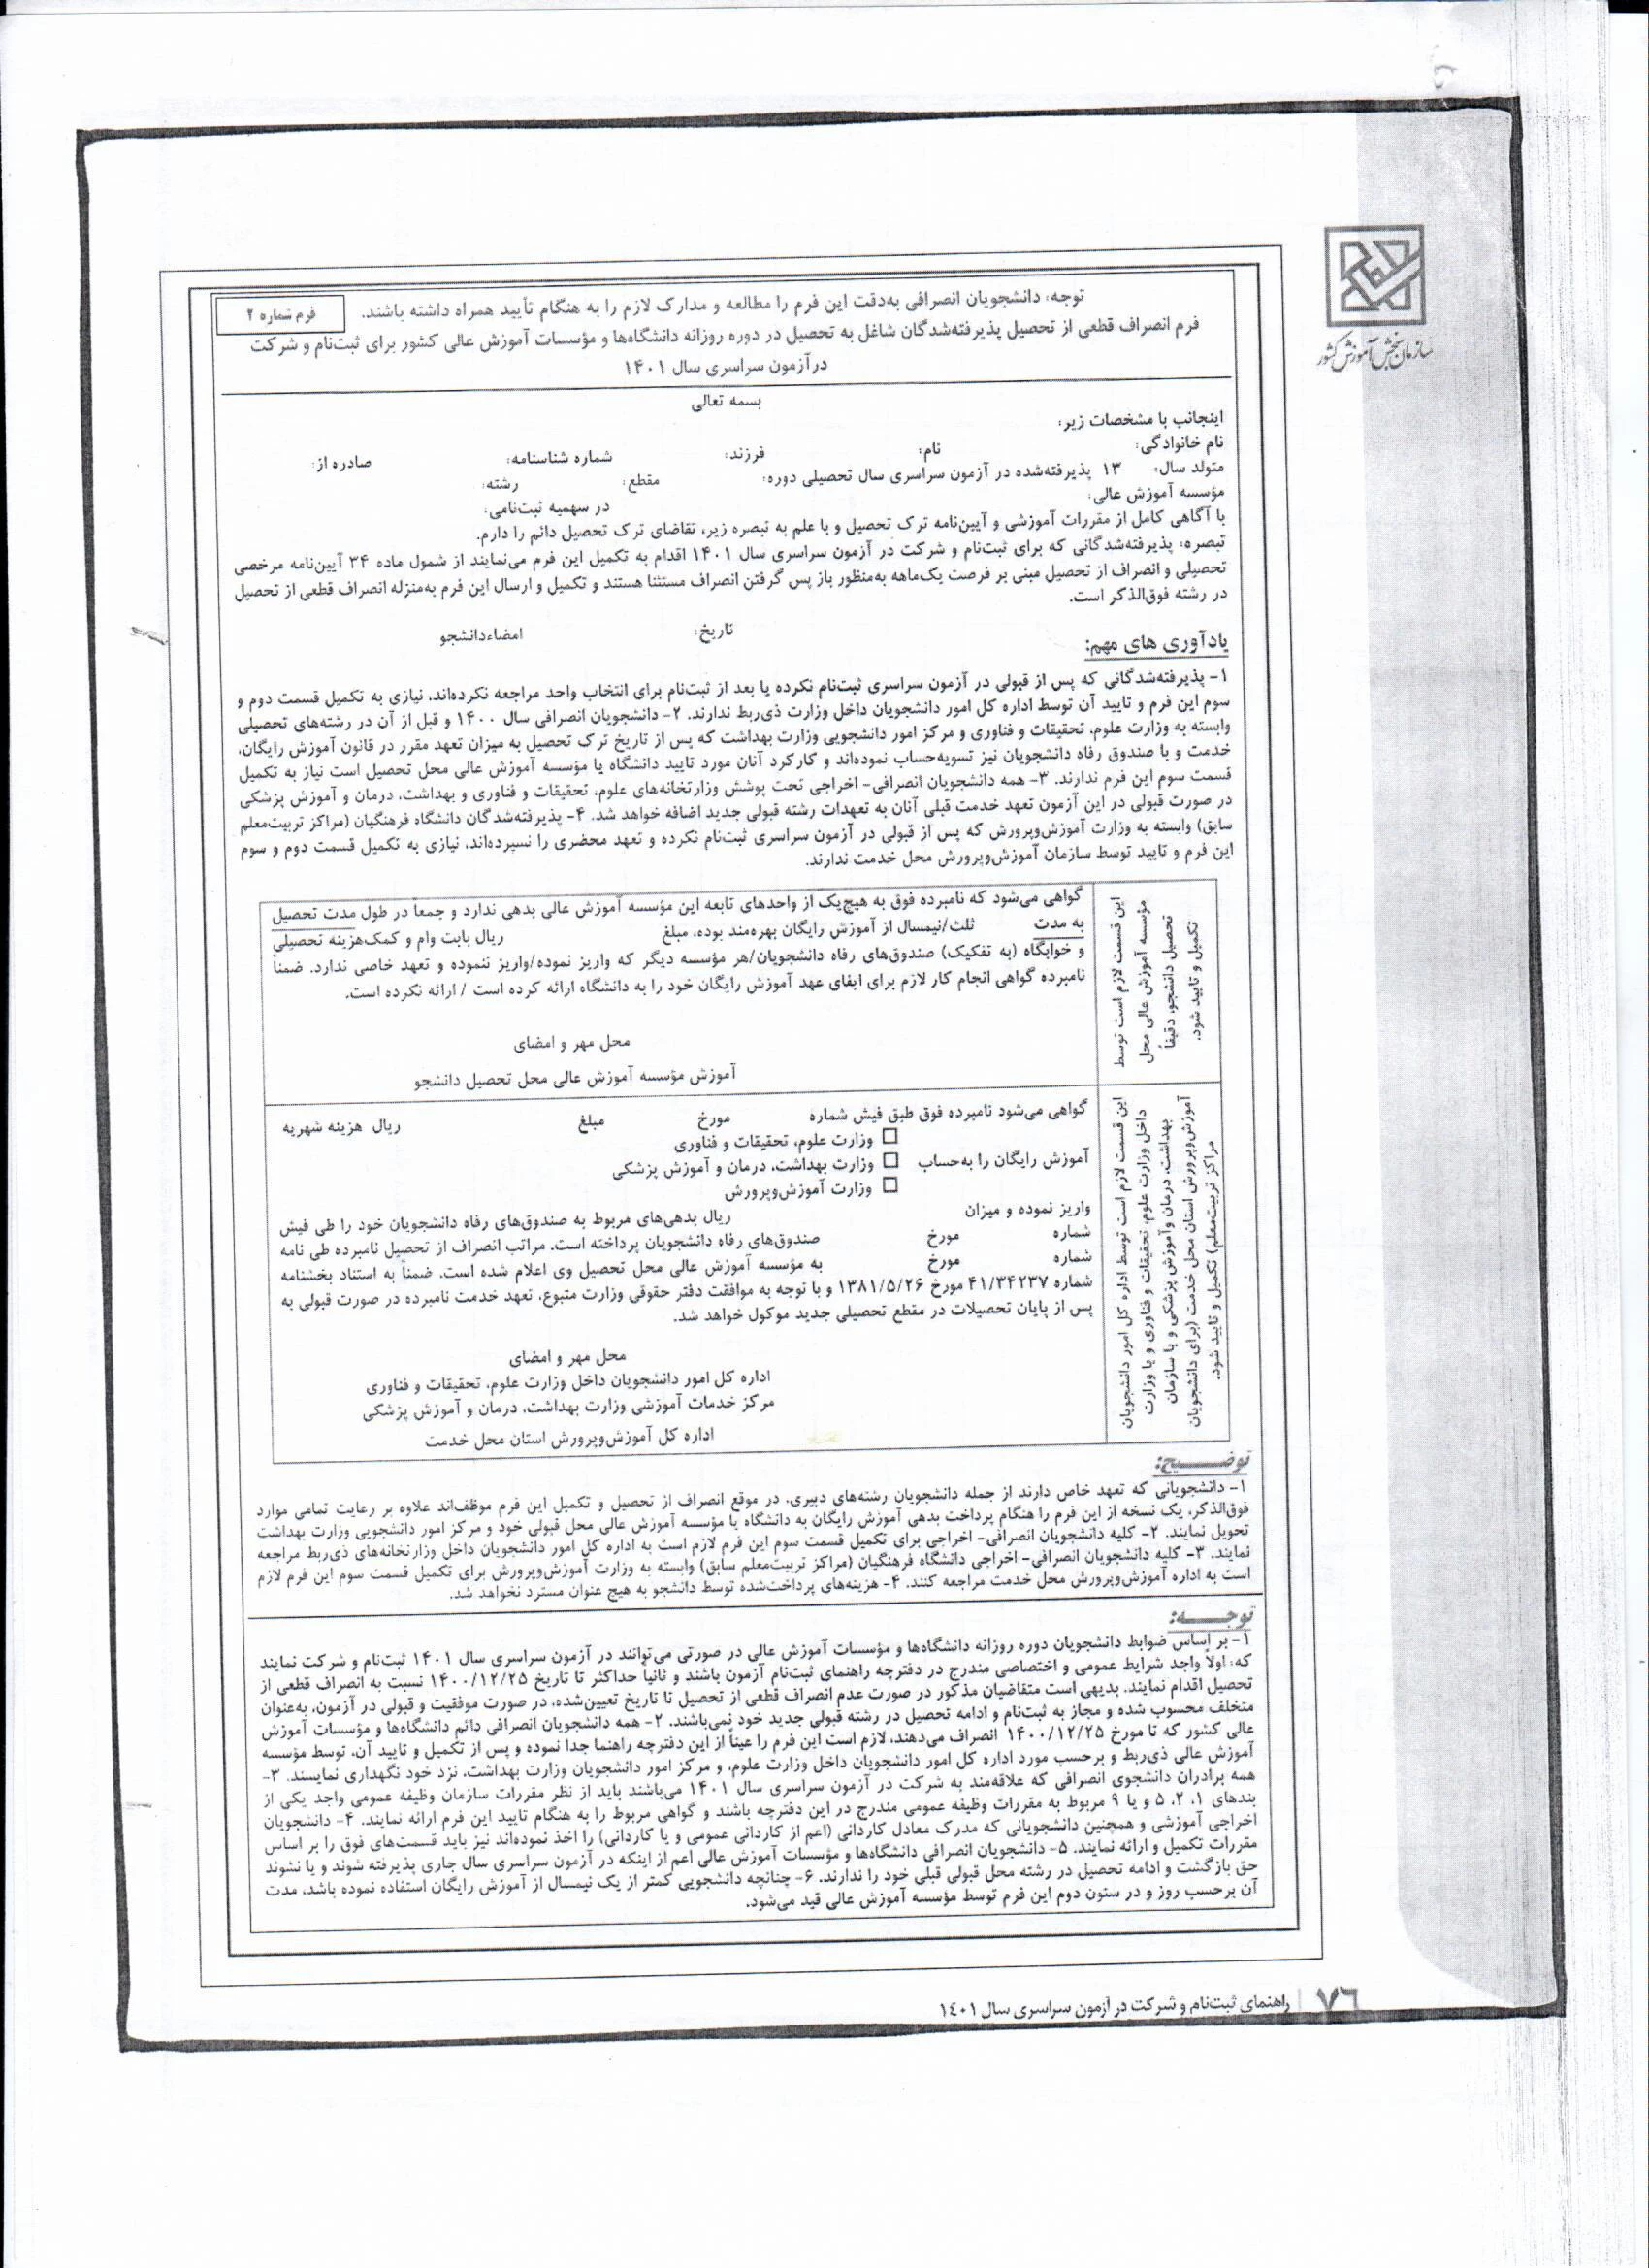 سازمان سنجش آموزش کشور
توجه: دانشجویان انصرافی به‌دقت این فرم را مطالعه و مدارک لازم را به هنگام تأیید همراه داشته باشند.
فرم شماره ۲
فرم انصراف قطعی از تحصیل پذیرفته‌شدگان شاغل به تحصیل در دوره روزانه دانشگاه‌ها و مؤسسات آموزش عالی کشور برای ثبت‌نام و شرکت
درآزمون سراسری سال ۱۴۰۱
بسمه تعالی
اینجانب با مشخصات زیر:
نام خانوادگی: نام: فرزند: شماره شناسنامه: صادره از:
متولد سال: ۱۳ پذیرفته‌شده در آزمون سراسری سال تحصیلی دوره: مقطع: رشته:
مؤسسه آموزش عالی: در سهمیه ثبت‌نامی:
با آگاهی کامل از مقررات آموزشی و آیین‌نامه ترک تحصیل و با علم به تبصره زیر، تقاضای ترک تحصیل دائم را دارم.
تبصره: پذیرفته‌شدگانی که برای ثبت‌نام و شرکت در آزمون سراسری سال ۱۴۰۱ اقدام به تکمیل این فرم می‌نمایند از شمول ماده ۳۴ آیین‌نامه مرخصی
تحصیلی و انصراف از تحصیل مبنی بر فرصت یک‌ماهه به‌منظور باز پس گرفتن انصراف مستثنا هستند و تکمیل و ارسال این فرم به‌منزله انصراف قطعی از تحصیل
در رشته فوق‌الذکر است.
تاریخ: امضاءدانشجو
یادآوری های مهم:
۱- پذیرفته‌شدگانی که پس از قبولی در آزمون سراسری ثبت‌نام نکرده یا بعد از ثبت‌نام برای انتخاب واحد مراجعه نکرده‌اند، نیازی به تکمیل قسمت دوم و
سوم این فرم و تایید آن توسط اداره کل امور دانشجویان داخل وزارت ذی‌ربط ندارند. ۲- دانشجویان انصرافی سال ۱۴۰۰ و قبل از آن در رشته‌های تحصیلی
وابسته به وزارت علوم، تحقیقات و فناوری و مرکز امور دانشجویی وزارت بهداشت که پس از تاریخ ترک تحصیل به میزان تعهد مقرر در قانون آموزش رایگان،
خدمت و با صندوق رفاه دانشجویان نیز تسویه‌حساب نموده‌اند و کارکرد آنان مورد تایید دانشگاه یا مؤسسه آموزش عالی محل تحصیل است نیاز به تکمیل
قسمت سوم این فرم ندارند. ۳- همه دانشجویان انصرافی- اخراجی تحت پوشش وزارتخانه‌های علوم، تحقیقات و فناوری و بهداشت، درمان و آموزش پزشکی
در صورت قبولی در این آزمون تعهد خدمت قبلی آنان به تعهدات رشته قبولی جدید اضافه خواهد شد. ۴- پذیرفته‌شدگان دانشگاه فرهنگیان (مراکز تربیت‌معلم
سابق) وابسته به وزارت آموزش‌وپرورش که پس از قبولی در آزمون سراسری ثبت‌نام نکرده و تعهد محضری را نسپرده‌اند، نیازی به تکمیل قسمت دوم و سوم
این فرم و تایید توسط سازمان آموزش‌وپرورش محل خدمت ندارند.
این قسمت لازم است توسط
مؤسسه آموزش عالی محل
تحصیل دانشجو، دقیقاً
تکمیل و تایید شود.
گواهی می‌شود که نامبرده فوق به هیچ‌یک از واحدهای تابعه این مؤسسه آموزش عالی بدهی ندارد و جمعاً در طول مدت تحصیل
به مدت ثلث/نیمسال از آموزش رایگان بهره‌مند بوده، مبلغ ریال بابت وام و کمک‌هزینه تحصیلی
و خوابگاه (به تفکیک) صندوق‌های رفاه دانشجویان/هر مؤسسه دیگر که واریز نموده/واریز ننموده و تعهد خاصی ندارد. ضمناً
نامبرده گواهی انجام کار لازم برای ایفای عهد آموزش رایگان خود را به دانشگاه ارائه کرده است / ارائه نکرده است.
محل مهر و امضای
آموزش مؤسسه آموزش عالی محل تحصیل دانشجو
این قسمت لازم است توسط اداره کل امور دانشجویان
داخل وزارت علوم، تحقیقات و فناوری و یا وزارت
بهداشت، درمان وآموزش پزشکی و یا سازمان
آموزش‌وپرورش استان محل خدمت (برای دانشجویان
مراکز تربیت‌معلم) تکمیل و تایید شود.
گواهی می‌شود نامبرده فوق طبق فیش شماره مورخ مبلغ ریال هزینه شهریه
وزارت علوم، تحقیقات و فناوری
آموزش رایگان را به‌حساب وزارت بهداشت، درمان و آموزش پزشکی
وزارت آموزش‌وپرورش
واریز نموده و میزان ریال بدهی‌های مربوط به صندوق‌های رفاه دانشجویان خود را طی فیش
شماره مورخ صندوق‌های رفاه دانشجویان پرداخته است. مراتب انصراف از تحصیل نامبرده طی نامه
شماره مورخ به مؤسسه آموزش عالی محل تحصیل وی اعلام شده است. ضمناً به استناد بخشنامه
شماره ۴۱/۳۴۲۳۷ مورخ ۱۳۸۱/۵/۲۶ و با توجه به موافقت دفتر حقوقی وزارت متبوع، تعهد خدمت نامبرده در صورت قبولی به
پس از پایان تحصیلات در مقطع تحصیلی جدید موکول خواهد شد.
محل مهر و امضای
اداره کل امور دانشجویان داخل وزارت علوم، تحقیقات و فناوری
مرکز خدمات آموزشی وزارت بهداشت، درمان و آموزش پزشکی
اداره کل آموزش‌وپرورش استان محل خدمت
توضیح:
۱- دانشجویانی که تعهد خاص دارند از جمله دانشجویان رشته‌های دبیری، در موقع انصراف از تحصیل و تکمیل این فرم موظف‌اند علاوه بر رعایت تمامی موارد
فوق‌الذکر، یک نسخه از این فرم را هنگام پرداخت بدهی آموزش رایگان به دانشگاه یا مؤسسه آموزش عالی محل قبولی خود و مرکز امور دانشجویی وزارت بهداشت
تحویل نمایند. ۲- کلیه دانشجویان انصرافی- اخراجی برای تکمیل قسمت سوم این فرم لازم است به اداره کل امور دانشجویان داخل وزارتخانه‌های ذی‌ربط مراجعه
نمایند. ۳- کلیه دانشجویان انصرافی- اخراجی دانشگاه فرهنگیان (مراکز تربیت‌معلم سابق) وابسته به وزارت آموزش‌وپرورش برای تکمیل قسمت سوم این فرم لازم
است به اداره آموزش‌وپرورش محل خدمت مراجعه کنند. ۴- هزینه‌های پرداخت‌شده توسط دانشجو به هیچ عنوان مسترد نخواهد شد.
توجه:
۱- بر اساس ضوابط دانشجویان دوره روزانه دانشگاه‌ها و مؤسسات آموزش عالی در صورتی می‌توانند در آزمون سراسری سال ۱۴۰۱ ثبت‌نام و شرکت نمایند
که: اولاً واجد شرایط عمومی و اختصاصی مندرج در دفترچه راهنمای ثبت‌نام آزمون باشند و ثانیاً حداکثر تا تاریخ ۱۴۰۰/۱۲/۲۵ نسبت به انصراف قطعی از
تحصیل اقدام نمایند. بدیهی است متقاضیان مذکور در صورت عدم انصراف قطعی از تحصیل تا تاریخ تعیین‌شده، در صورت موفقیت و قبولی در آزمون، به‌عنوان
متخلف محسوب شده و مجاز به ثبت‌نام و ادامه تحصیل در رشته قبولی جدید خود نمی‌باشند. ۲- همه دانشجویان انصرافی دائم دانشگاه‌ها و مؤسسات آموزش
عالی کشور که تا مورخ ۱۴۰۰/۱۲/۲۵ انصراف می‌دهند، لازم است این فرم را عیناً از این دفترچه راهنما جدا نموده و پس از تکمیل و تایید آن، توسط مؤسسه
آموزش عالی ذی‌ربط و برحسب مورد اداره کل امور دانشجویان داخل وزارت علوم، و مرکز امور دانشجویان وزارت بهداشت، نزد خود نگهداری نمایند. ۳-
همه برادران دانشجوی انصرافی که علاقه‌مند به شرکت در آزمون سراسری سال ۱۴۰۱ می‌باشند باید از نظر مقررات سازمان وظیفه عمومی واجد یکی از
بندهای ۱، ۲، ۵ و یا ۹ مربوط به مقررات وظیفه عمومی مندرج در این دفترچه باشند و گواهی مربوط را به هنگام تایید این فرم ارائه نمایند. ۴- دانشجویان
اخراجی آموزشی و همچنین دانشجویانی که مدرک معادل کاردانی (اعم از کاردانی عمومی و یا کاردانی) را اخذ نموده‌اند نیز باید قسمت‌های فوق را بر اساس
مقررات تکمیل و ارائه نمایند. ۵- دانشجویان انصرافی دانشگاه‌ها و مؤسسات آموزش عالی اعم از اینکه در آزمون سراسری سال جاری پذیرفته شوند و یا نشوند
حق بازگشت و ادامه تحصیل در رشته محل قبولی قبلی خود را ندارند. ۶- چنانچه دانشجویی کمتر از یک نیمسال از آموزش رایگان استفاده نموده باشد، مدت
آن برحسب روز و در ستون دوم این فرم توسط مؤسسه آموزش عالی قید می‌شود.
۷۶ راهنمای ثبت‌نام و شرکت در آزمون سراسری سال ۱۴۰۱